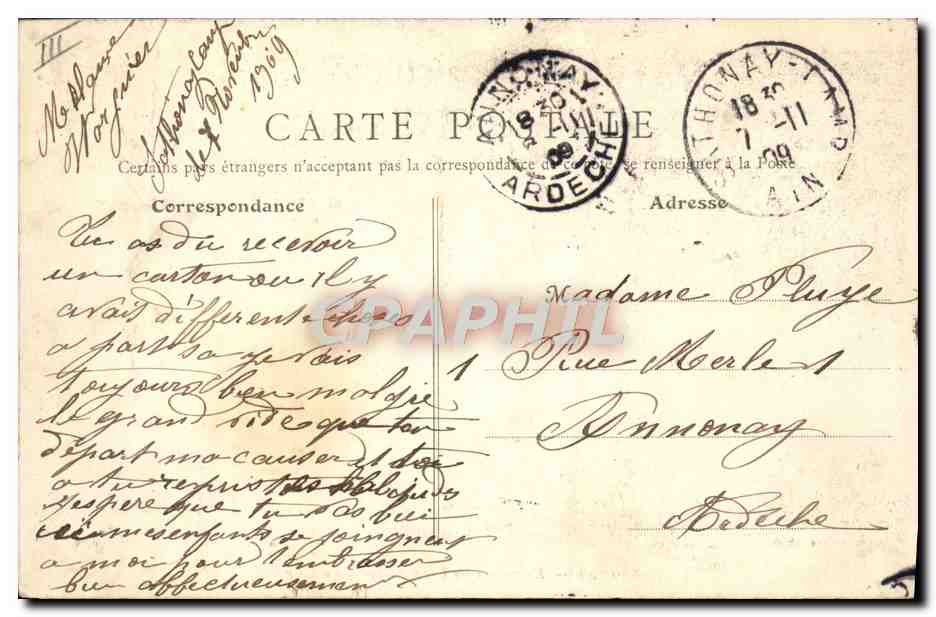 III
Madame
Sathonay Camp
le 7 Novembre
1909
CARTE POSTALE
Certains pays étrangers n'acceptent pas la correspondance de ce côté, se renseigner à la Poste
Correspondance
Adresse
ANNONAY
8 30
8 -11
09
ARDECHE
SATHONAY-CAMP
18 30
7 -11
09
AIN
Tu as du recevoir
un carton ou il y
avait different choses
a part sa je vais
toujours bien malgre
le grand vide que ton
départ ma causer et toi
a tu repris
J'espere que tu vas bien
mes enfants se joingnent
a moi pour t'embrasser
bien affectueusement
Madame Pluye
1 Rue Merle 1
Annonay
Ardeche
CPAPHIL